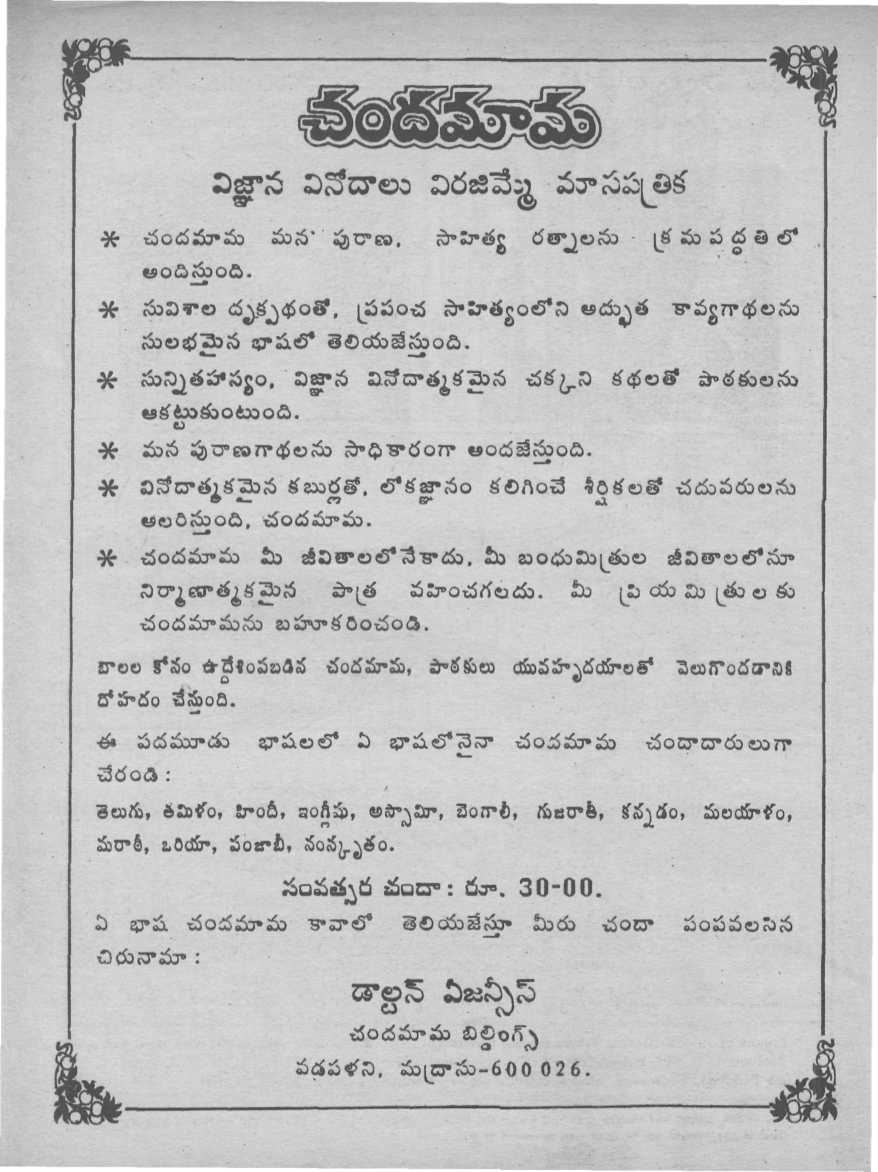 చందమామ
విజ్ఞాన వినోదాలు విరజిమ్మే మాసపత్రిక
* చందమామ మన పురాణ, సాహిత్య రత్నాలను క్రమపద్ధతిలో
అందిస్తుంది.
* సువిశాల దృక్పథంతో, ప్రపంచ సాహిత్యంలోని అద్భుత కావ్యగాథలను
సులభమైన భాషలో తెలియజేస్తుంది.
* సున్నితహాస్యం, విజ్ఞాన వినోదాత్మకమైన చక్కని కథలతో పాఠకులను
ఆకట్టుకుంటుంది.
* మన పురాణగాథలను సాధికారంగా అందజేస్తుంది.
* వినోదాత్మకమైన కబుర్లతో, లోకజ్ఞానం కలిగించే శీర్షికలతో చదువరులను
అలరిస్తుంది, చందమామ.
* చందమామ మీ జీవితాలలోనేకాదు, మీ బంధుమిత్రుల జీవితాలలోనూ
నిర్మాణాత్మకమైన పాత్ర వహించగలదు. మీ ప్రియమిత్రులకు
చందమామను బహూకరించండి.
బాలల కోసం ఉద్దేశింపబడిన చందమామ, పాఠకులు యువహృదయాలతో వెలుగొందడానికి
దోహదం చేస్తుంది.
ఈ పదమూడు భాషలలో ఏ భాషలోనైనా చందమామ చందాదారులుగా
చేరండి :
తెలుగు, తమిళం, హిందీ, ఇంగ్లీషు, అస్సామీ, బెంగాలీ, గుజరాతీ, కన్నడం, మలయాళం,
మరాఠీ, ఒరియా, పంజాబీ, సంస్కృతం.
సంవత్సర చందా : రూ. 30-00.
ఏ భాష చందమామ కావాలో తెలియజేస్తూ మీరు చందా పంపవలసిన
చిరునామా :
డాల్టన్ ఏజన్సీస్
చందమామ బిల్డింగ్స్
వడపళని, మద్రాసు-600 026.